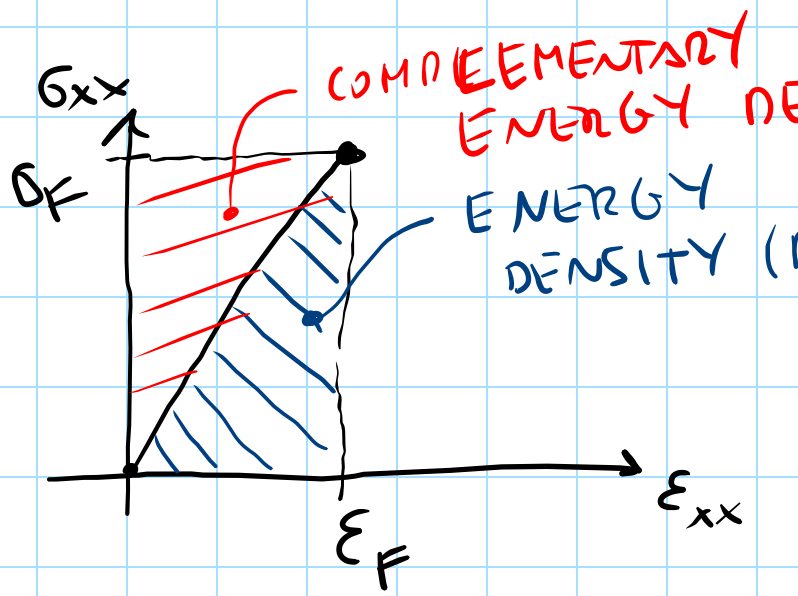 σxx
COMPLEMENTARY
ENERGY DE
σF
ENERGY
DENSITY (
εxx
εF